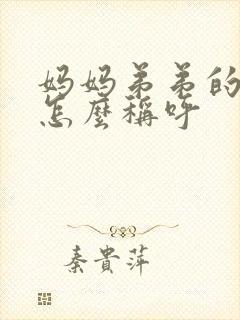 妈妈弟弟的
怎麼稱呼
秦貴萍